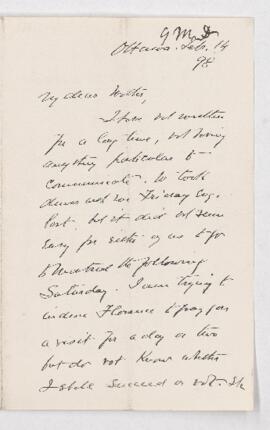 G M D
Ottawa. Feb. 14
98
My dear
I have not written
for a long time, not having
anything particular to
communicate. We took
down and Friday Eve.
last. but it did not seem
easy for either of us to go
to Montreal the following
Saturday. I am trying to
induce Florence to pay you
a visit for a day or two
but do not know whether
I shall succeed or not. She